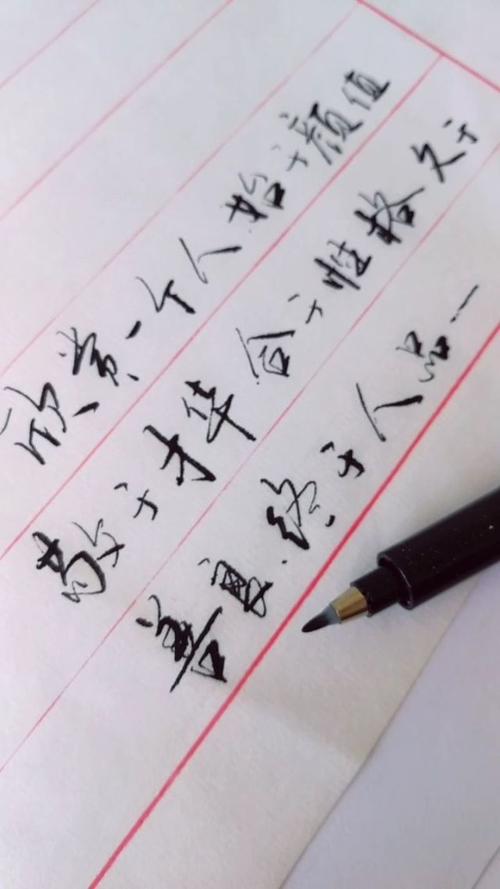 欣赏一个人始于颜值
敬于才华合于性格久于
善良.终于人品一